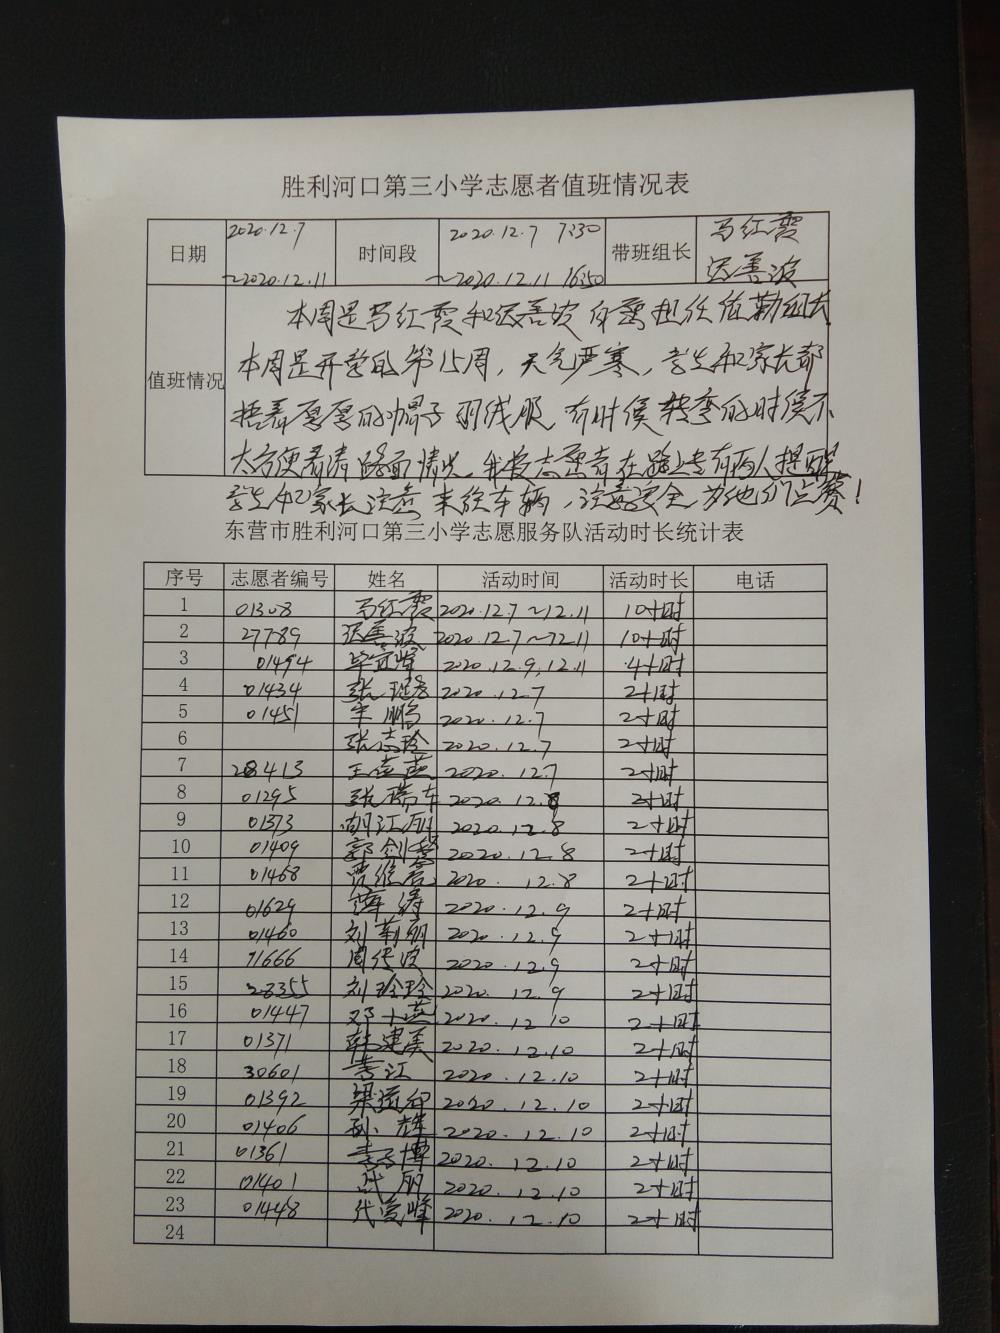 胜利河口第三小学志愿者值班情况表
日期 2020.12.7 ~2020.12.11 时间段 2020.12.7 7:30 ~2020.12.11 16:50 带班组长 马红霞 张善波
值班情况
本周是马红霞和张善波 担任值勤组长
本周是开学的第15周，天气严寒，学生和家长都
捂着厚厚的帽子羽绒服，有时候转弯的时候不
太方便看清路面情况，我校志愿者在路上专有两人提醒
学生和家长注意来往车辆，注意安全，为他们点赞！
东营市胜利河口第三小学志愿服务队活动时长统计表
序号 志愿者编号 姓名 活动时间 活动时长 电话
1 01308 马红霞 2020.12.7~12.11 10小时
2 27789 张善波 2020.12.7~12.11 10小时
3 01494 2020.12.9,12.11 4小时
4 01434 张 2020.12.7 2小时
5 01451 朱鹏 2020.12.7 2小时
6 张志玲 2020.12.7 2小时
7 28413 王 燕 2020.12.7 2小时
8 01295 张瑞车 2020.12.8 2小时
9 01373 胡江丽 2020.12.8 2小时
10 01409 郭剑 2020.12.8 2小时
11 01468 贾维 2020.12.8 2小时
12 01629 薛涛 2020.12.9 2小时
13 01460 刘 丽 2020.12.9 2小时
14 71666 周 波 2020.12.9 2小时
15 28355 刘玲玲 2020.12.9 2小时
16 01447 邓小燕 2020.12.10 2小时
17 01371 韩建美 2020.12.10 2小时
18 30601 江 2020.12.10 2小时
19 01392 梁 2020.12.10 2小时
20 01406 孙辉 2020.12.10 2小时
21 01361 博 2020.12.10 2小时
22 01401 武丽 2020.12.10 2小时
23 01448 代爱峰 2020.12.10 2小时
24